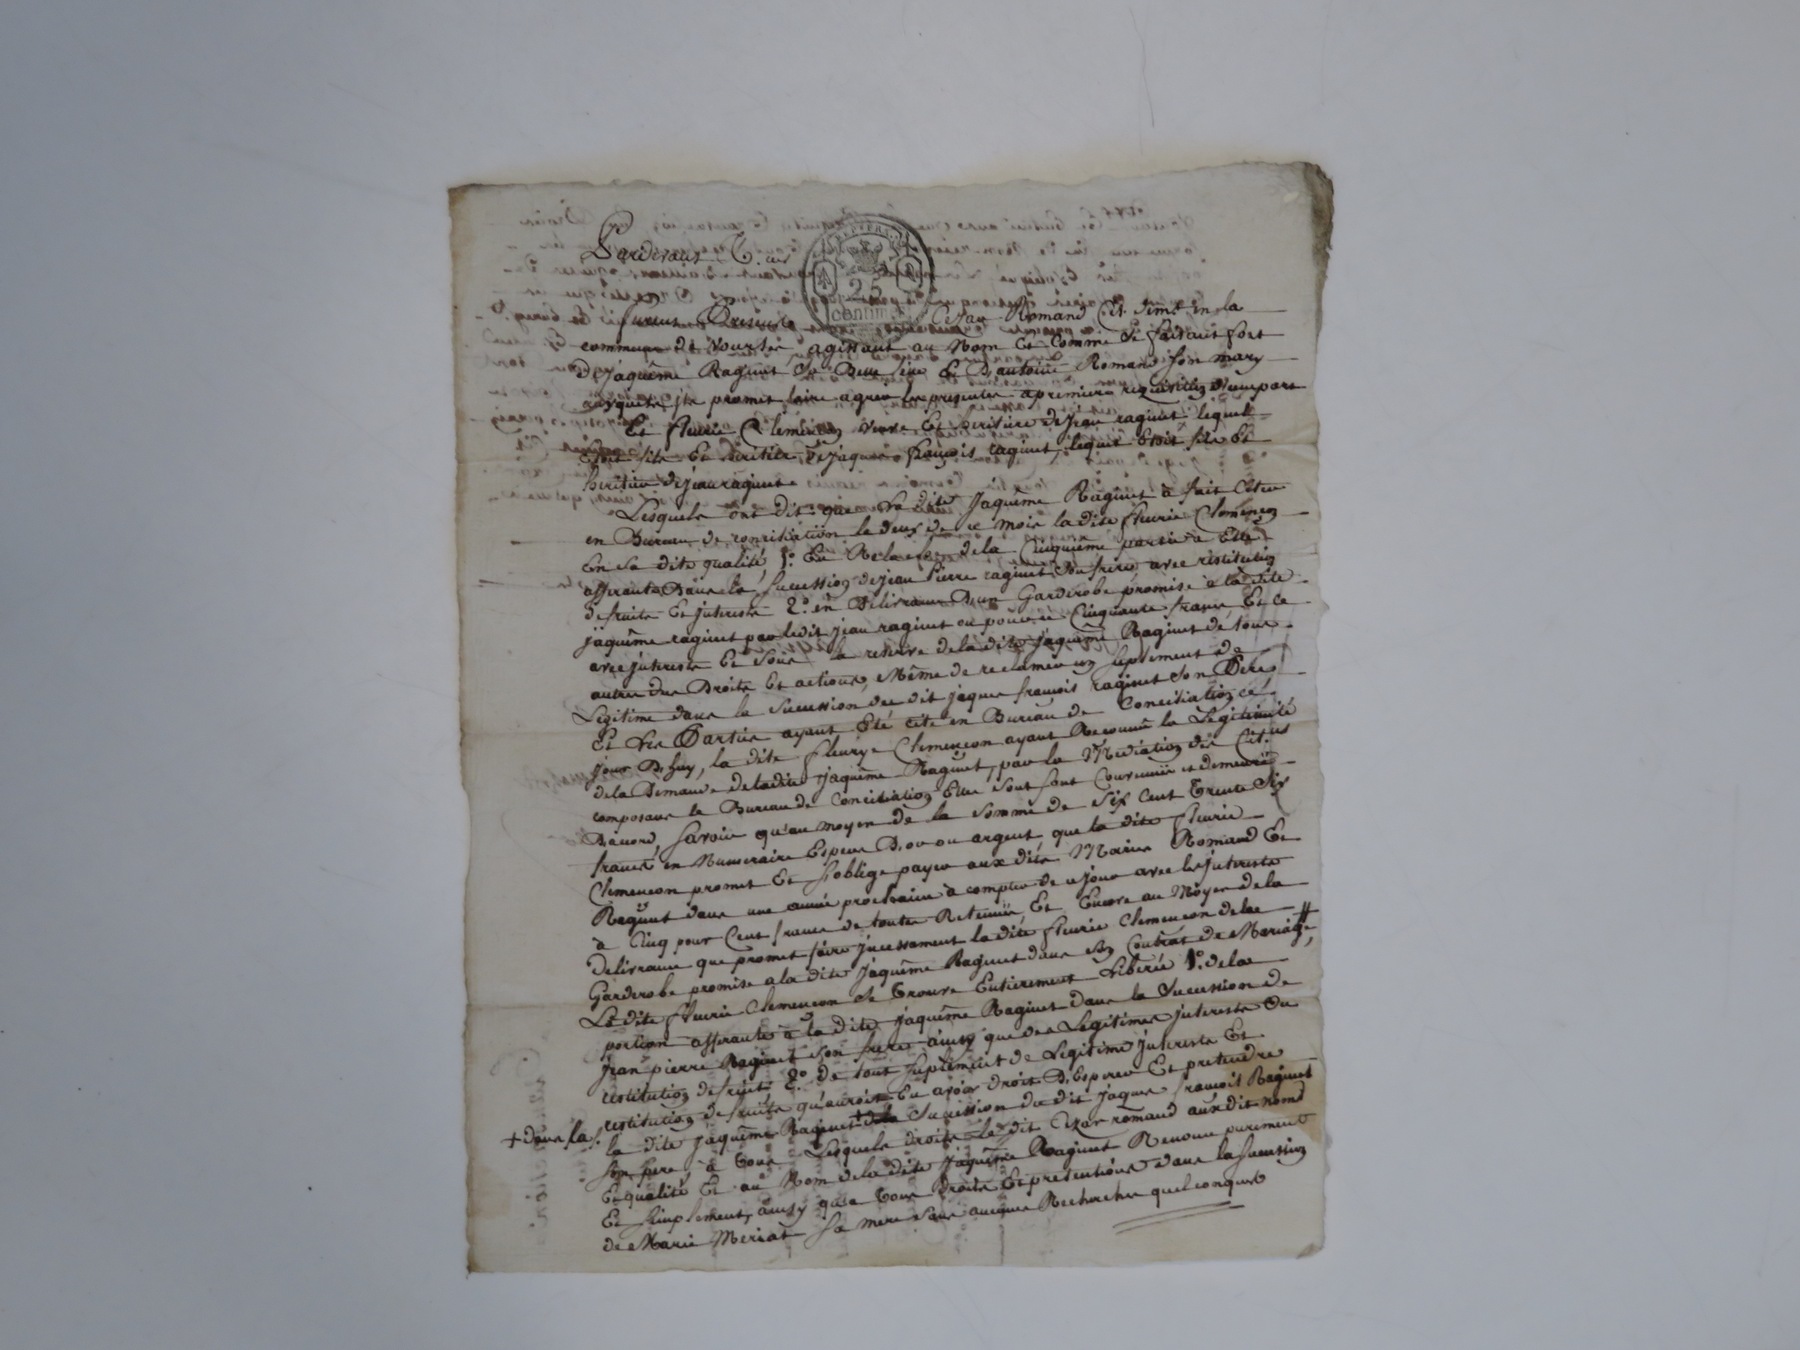 Pardevant
25
centim
furent Presents Cezar Romand Cit. dem.t en la
commune de agissant au Nom et Comme se faisant fort
de Jaquême Raginet et D'antoine Romand son mary
auxquels il promet faire agreer les presentes a premiere requisition D'une part
Et fleurie Clemençon veuve Et heritiere de Jean raginet lequel
Etoit fils Et heritier de Jaques françois raginet, lequel Etoit fils Et
heritier de Jean raginet.
Lesquels ont dit que la dite Jaquême Raginet à fait Citer
en Bureau de conciliation le deux de ce mois la dite fleurie Clemençon
En sa dite qualité, 1.° En Relache de la Cinquieme partie à Elle
afferante Dans la succession de Jean Pierre raginet son frere avec restitution
de fruits Et interests 2.° en Délivrance D'un Garderobe promise à la dite
Jaquême raginet par ledit Jean raginet ou pour ce Cinquante francs, Et ce
avec interests Et sous la reserve de la dite Jaquême Raginet de tous
autres dus Droits Et actions, Même de reclamer un suplement de
Legitime dans la succession du dit Jaques françois raginet son Pere,
Et les Parties ayant Eté cité en Bureau de Conciliation ce
Jour D'huy, la dite fleurye Clemencon ayant Reconnu la Légitimité
de la Demande de ladite Jaquême Raginet, par la Médiation des Cit.ens
composans le Bureau de Conciliation Elles sont Convenües et demeurées
D'acord, savoir qu'au moyen de la somme de Six Cent Trente Six
francs en Numeraire Especes D'or ou argent, que la dite fleurie
Clemencon promet Et s'oblige payer aux dits Mariés Romand Et
Raginet dans une année prochaine à compter de ce jour avec les interests
à Cinq pour Cent francs de toutes Retenües, Et Encore au Moyen de la
delivrance que promet faire incessament la dite fleurie Clemencon de la
Garderobe promise a la dite Jaquême Raginet dans son Contrat de Mariage,
La dite fleurie Clemencon se Trouve Entierement Liberée 1.° de la
portion afferante à la dite Jaquême Raginet dans la Succession de
Jean pierre Raginet son frere ainsy que des Legitimes interests Ou
restitution de fruits 2.° de tout suplément de Legitime interests Et
restitution de fruits qu'auroit Eu avoir droit D'Esperer Et pretendre
+ dans la
la dite Jaquême Raginet + Succession du dit Jaques françois Raginet
son pere, à tous Lesquels droits Le dit Cezar romand aux dit noms
Et qualité Et au Nom de la dite Jaquême Raginet Renonce purement
Et simplement, ainsy qu'a tous droits Et pretentions dans la succession
de Marie Meriat sa mere sans aucunes Recherches quelconques